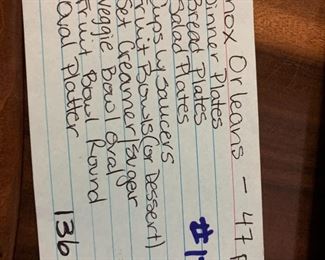 nox Orleans - 47 P
inner Plates
Bread Plates
Salad Plates
ups ly saucers
ruit Bowls (or Dessert)
Set Creamer/sugar
Veggie Bowl Oval
Fruit Bowl Round
Oval Platter
136